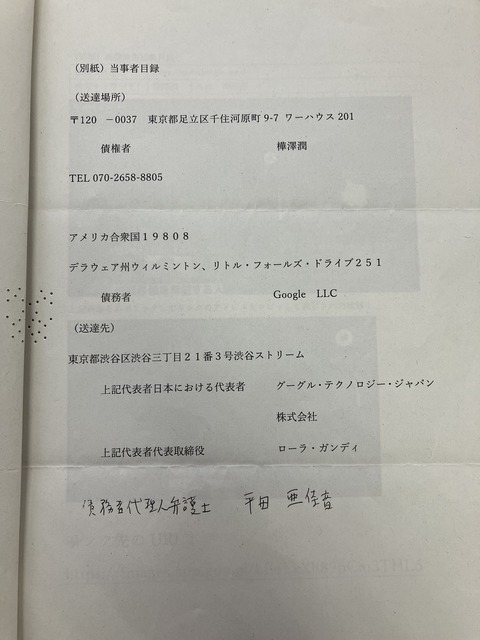 (別紙) 当事者目録
(送達場所)
〒120 -0037 東京都足立区千住河原町9-7 ワーハウス201
債権者 樺澤潤
TEL 070-2658-8805
アメリカ合衆国19808
デラウェア州ウィルミントン、リトル・フォールズ・ドライブ251
債務者 Google LLC
(送達先)
東京都渋谷区渋谷三丁目21番3号渋谷ストリーム
上記代表者日本における代表者 グーグル・テクノロジー・ジャパン
株式会社
上記代表者代表取締役 ローラ・ガンディ
債務者代理人弁護士 平田 亜佳音